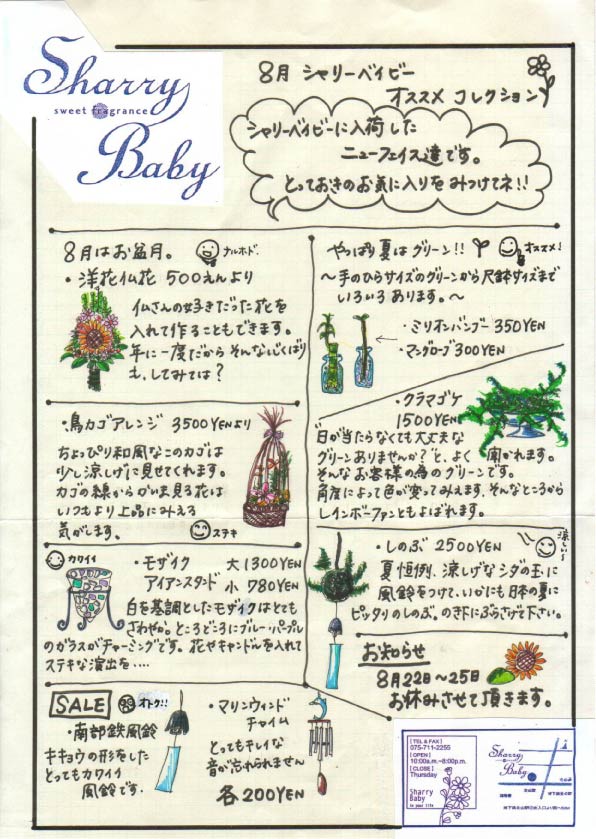 Sharry
sweet fragrance
Baby
8月 シャリーベイビー
オススメ コレクション
シャリーベイビーに入荷した
ニューフェイス達です。
とっておきのお気に入りをみつけてネ!!
8月はお盆月。
ナルホド.
・洋花仏花 500えんより
仏さんの好きだった花を
入れて作ることもできます。
年に一度だからそんな心くばり
も、してみては?
やっぱり夏はグリーン!!
オススメ!
〜手のひらサイズのグリーンから尺鉢サイズまで
いろいろあります。〜
・ミリオンバンブー 350YEN
・マングローブ 300YEN
・クラマゴケ
1500YEN
日が当たらなくても大丈夫な
グリーンありませんか?と、よく 聞かれます。
そんなお客様の為のグリーンです。
角度によって色が変ってみえます。そんなところから
レインボーファンともよばれます。
・鳥カゴアレンジ 3500YENより
ちょっぴり和風なこのカゴは
少し涼しげに見せてくれます。
カゴの線からかいま見る花は
いつもより上品にみえる
気がします。
ステキ
カワイイ
・モザイク 大 1300YEN
アイアンスタンド 小 780YEN
白を基調としたモザイクはとても
さわやか。ところどころにブルー・パープル
のガラスがチャーミングです。花やキャンドルを入れて
ステキな演出を‥‥
・しのぶ 2500YEN
涼しい〜
夏恒例、涼しげなシダの玉に
風鈴をつけて、いかにも日本の夏に
ピッタリのしのぶ。のき下にぶらさげて下さい。
お知らせ
8月22日〜25日
お休みさせて頂きます。
SALE
オトク!!
・南部鉄風鈴
キキョウの形をした
とってもカワイイ
風鈴です.
・マリンウィンド
チャイム
とってもキレイな
音が忘れられません
各200YEN
[ TEL & FAX ]
075-711-2255
[ OPEN ]
10:00a.m.–8:00p.m.
[ CLOSE ]
Thursday
Sharry
Baby
in your life
Sharry
Baby